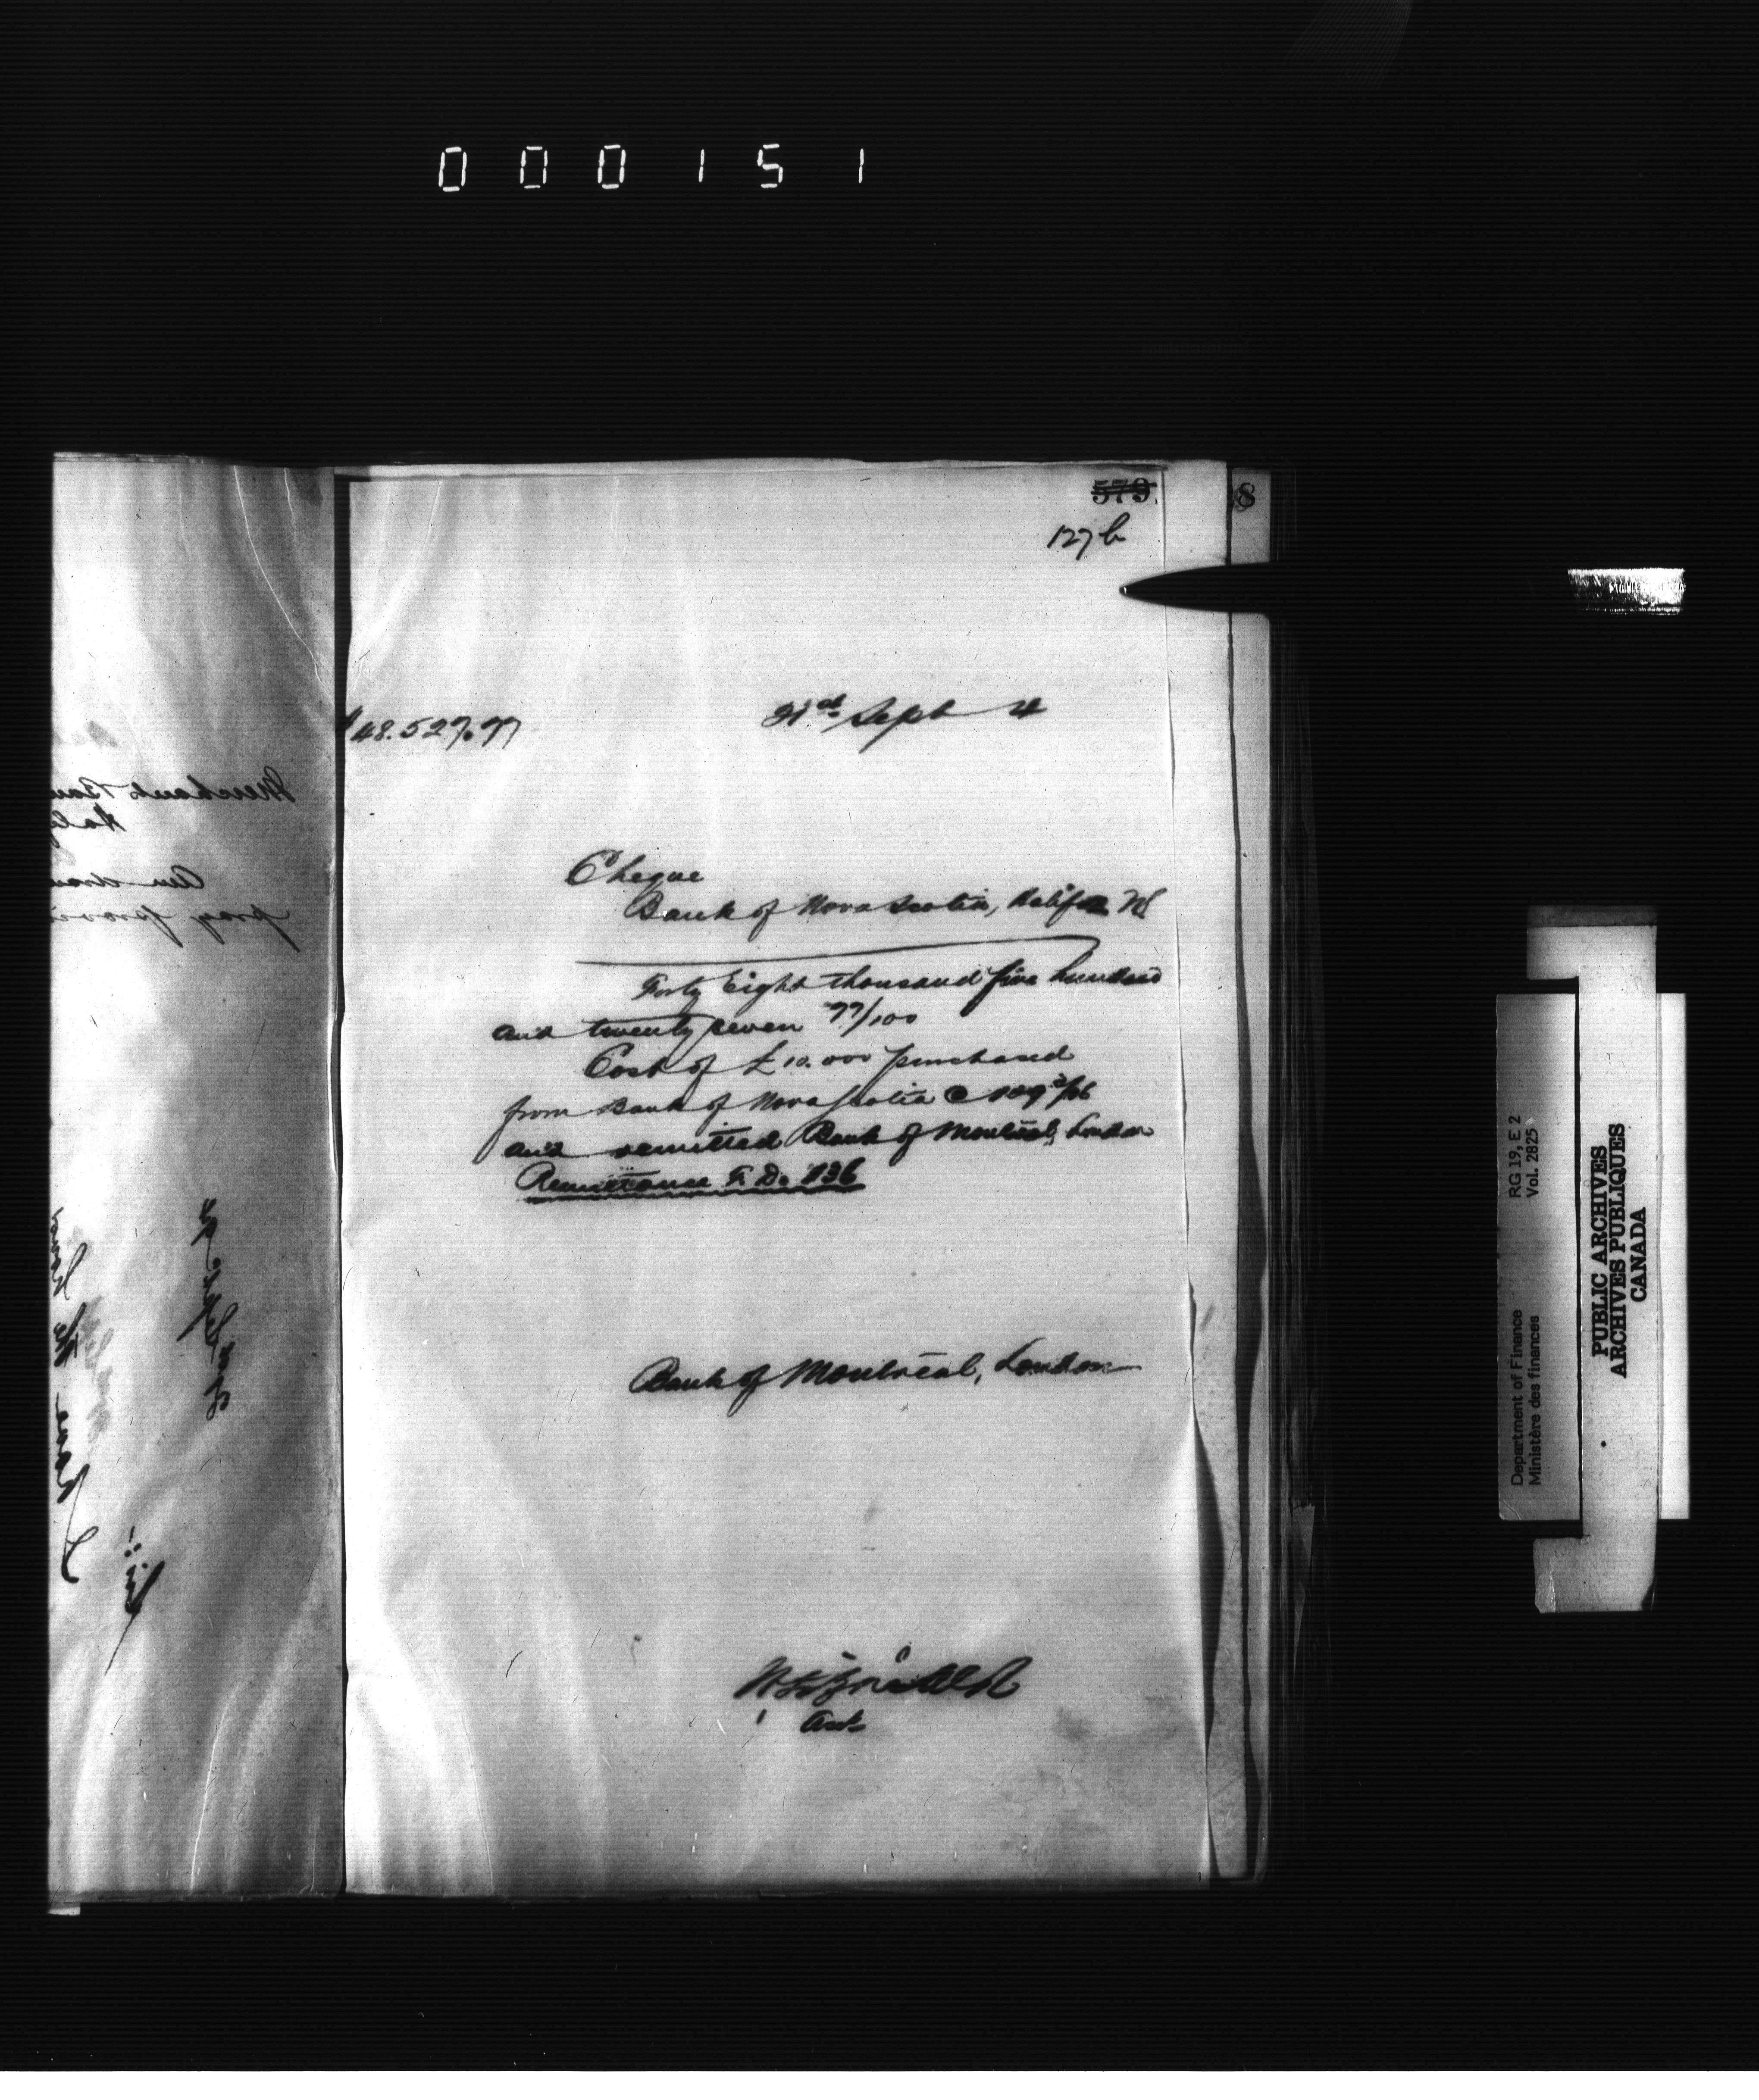 000151
579.
8
127 b
$48.527.77
21st Sept 4
Cheque
Bank of Nova Scotia, Halifax NS
Forty Eight thousand five hundred
and twenty seven 77/100
Cost of £10.000 purchased
from Bank of Nova Scotia @ 109 3/16
and remitted Bank of Montreal, London
Remittance F. D. 136
Bank of Montreal, London
Merchants Ban
Hali
pray
Sir
I have the honor
RG 19, E 2
Vol. 2825
Department of Finance
Ministère des finances
PUBLIC ARCHIVES
ARCHIVES PUBLIQUES
CANADA